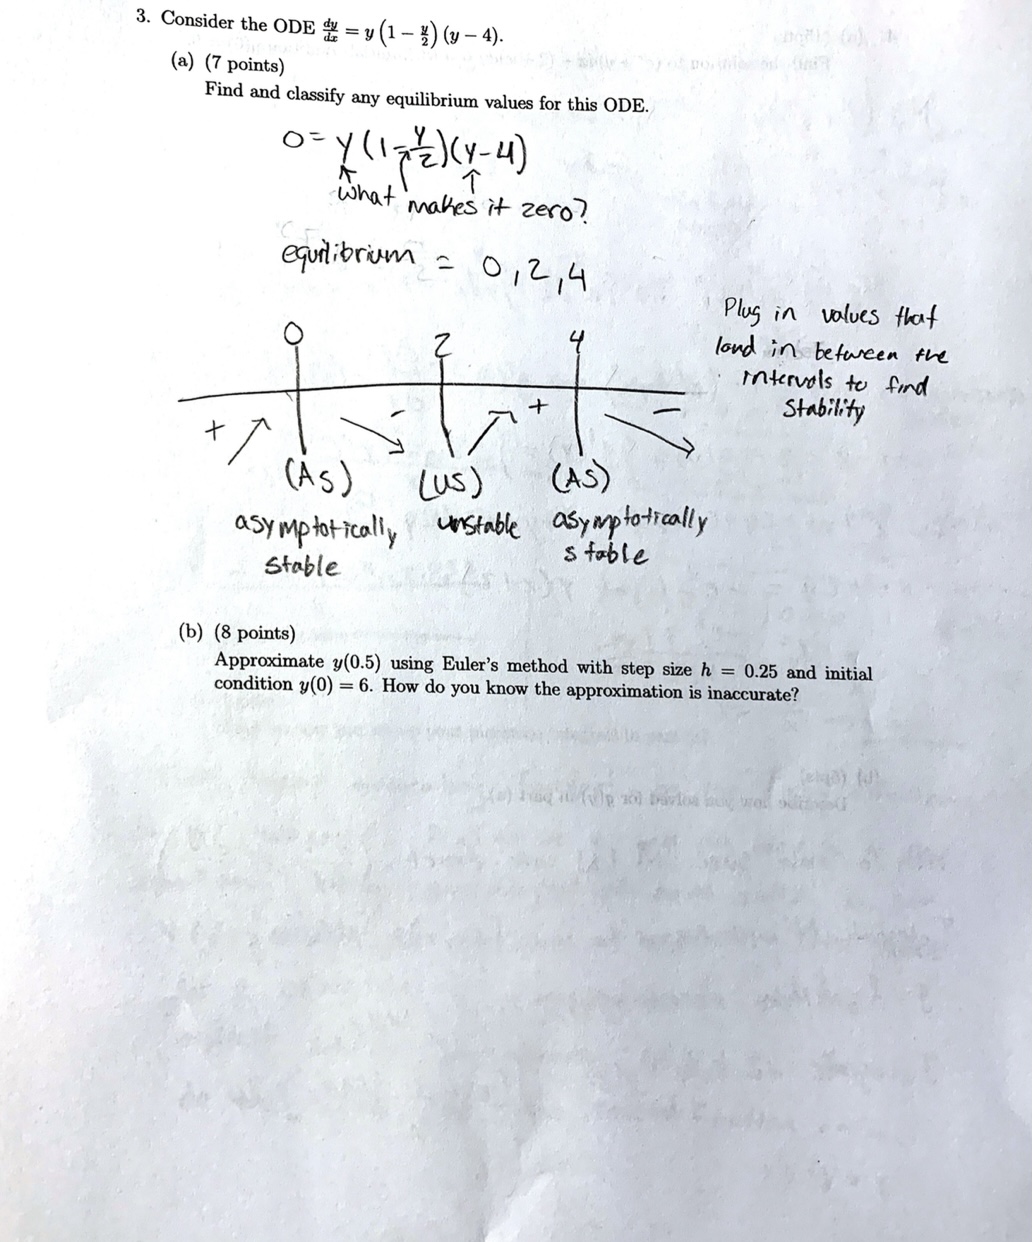 3. Consider the ODE dy/dx = y (1 − y/2) (y − 4).
(a) (7 points)
Find and classify any equilibrium values for this ODE.
0 = y (1 - y/2)(y-4)
what makes it zero?
equilibrium = 0, 2, 4
Plug in values that
land in between the
intervals to find
Stability
0 2 4
+ - + -
(AS) (US) (AS)
asymptotically unstable asymptotically
stable stable
(b) (8 points)
Approximate y(0.5) using Euler's method with step size h = 0.25 and initial
condition y(0) = 6. How do you know the approximation is inaccurate?